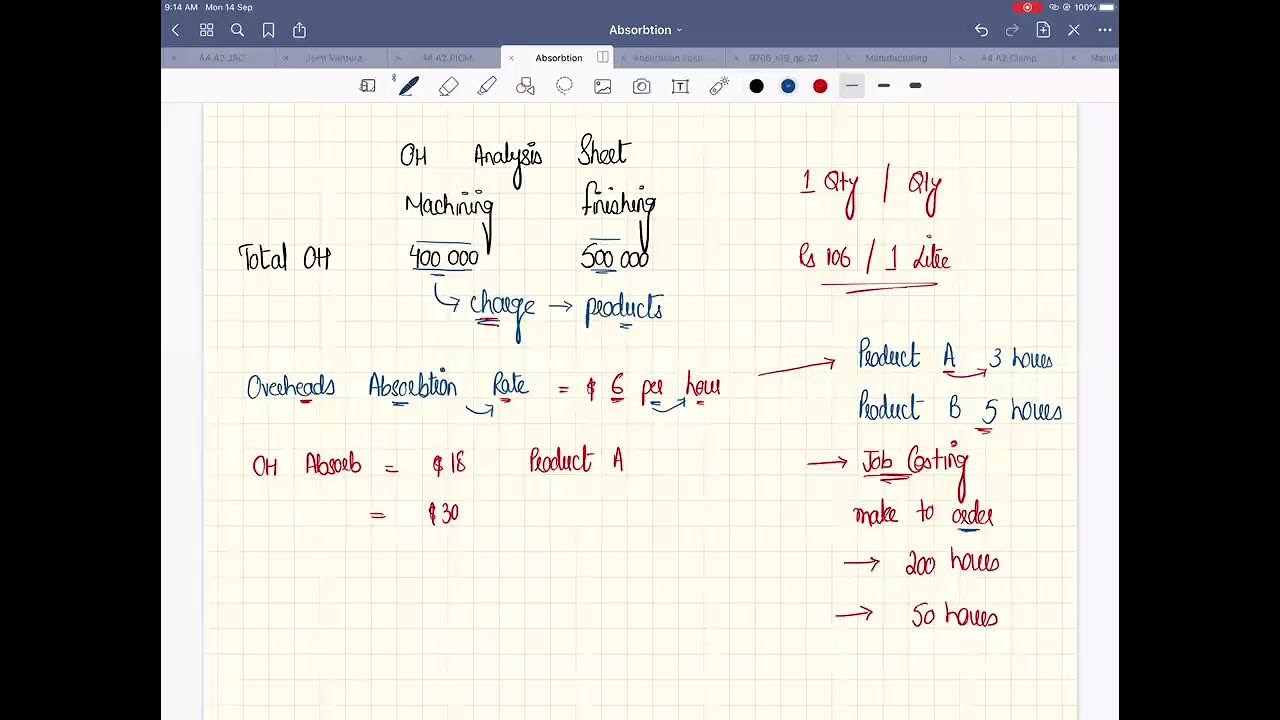 9:14 AM Mon 14 Sep
100%
Absorbtion
Joint Venture
Absorbtion
9706_s19_qp_32
Manufacturing
OH Analysis Sheet
Machining finishing
Total OH 400 000 500 000
charge → products
Overheads Absorbtion Rate = $ 6 per hour
OH Absorb = $18 Product A
= $30
1 Qty / Qty
Rs 106 / 1 Litre
Product A 3 hours
Product B 5 hours
→ Job Costing
make to order
→ 200 hours
→ 50 hours